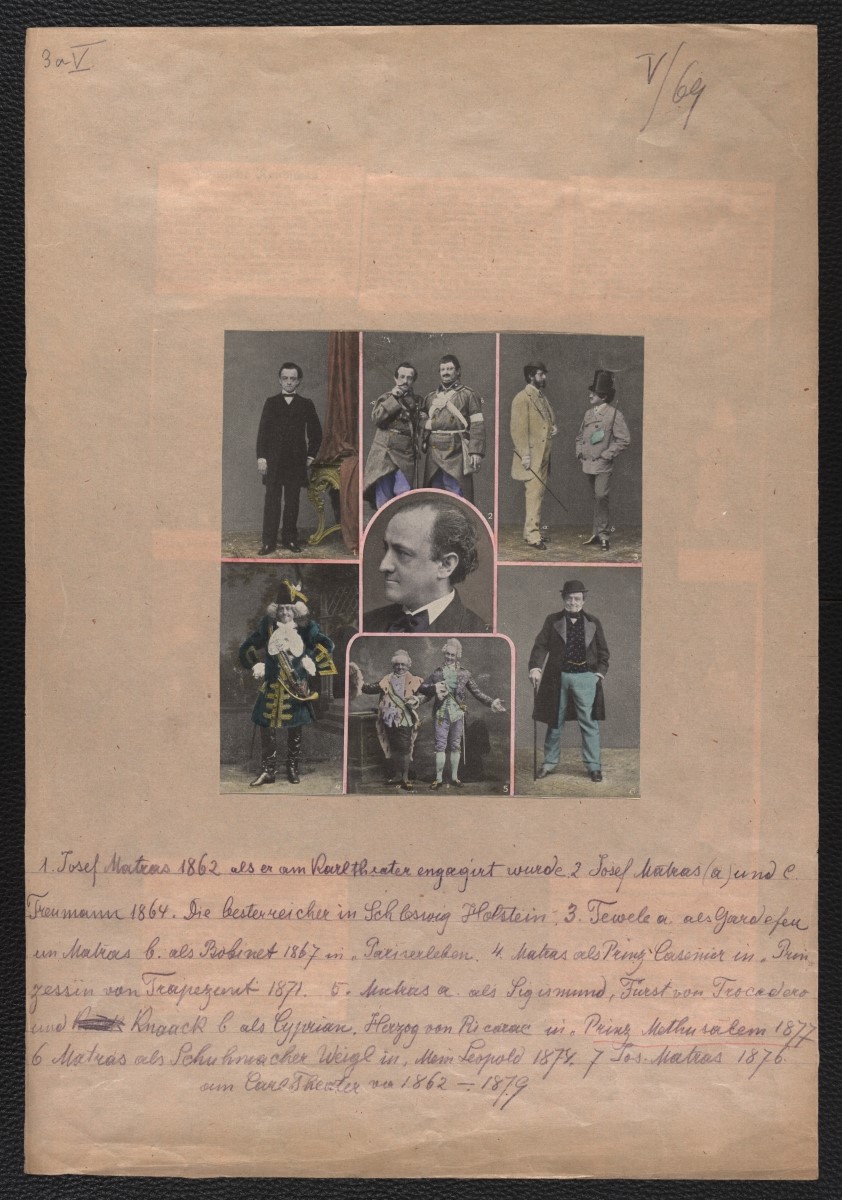 3a V
V/69
1
2
3
a
4
5
1. Josef Matras 1862 als er am Karltheater engagirt wurde, 2 Josef Matras (a) und C.
Treumann 1864. Die Oesterreicher in Schleswig Holstein. 3. Tewele a. als Gardefeu
un Matras b. als Bobinet 1867 in „Pariserleben. 4. Matras als Prinz Casemir in „Prin
zessin von Trapezunt 1871. 5. Matras a. als Sigismund, Fürst von Trocadero
und Knaack b als Cyprian. Herzog von Ricarac in „Prinz Methusalem 1877
6 Matras als Schuhmacher Weigl in „Mein Leopold 1874. 7 Jos. Matras 1876.
am Carl Theater vo 1862 – 1879